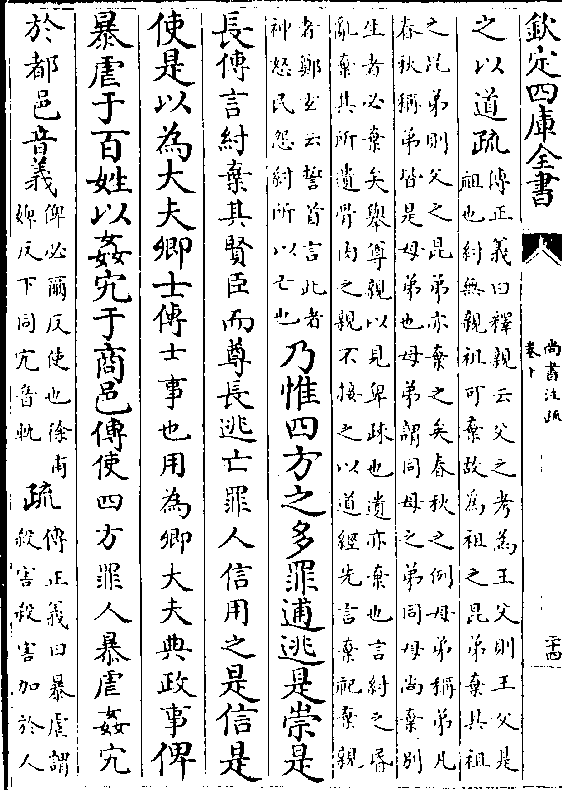 欽定四庫全書
尚書注疏
卷十
之以道疏傳正義曰釋親云父之考為王父則王父是
祖也紂無親祖可棄故為祖之昆弟棄其祖
之昆弟則父之昆弟亦棄之矣春秋之例母弟稱弟凡
春秋稱弟皆是母弟也母弟謂同母之弟同母尚棄別
生者必棄矣舉尊親以見卑疎也遺亦棄也言紂之昬
亂棄其所遺骨肉之親不接之以道經先言棄祀棄親
者鄭玄云誓首言此者
神怒民怨紂所以亡也
乃惟四方之多罪逋逃是崇是
長傳言紂棄其賢臣而尊長逃亡罪人信用之是信是
使是以為大夫卿士傳士事也用為卿大夫典政事俾
暴虐于百姓以姦宄于商邑傳使四方罪人暴虐姦宄
於都邑音義俾必爾反使也徐甫
婢反下同宄音軌
疏傳正義曰暴虐謂
殺害殺害加於人